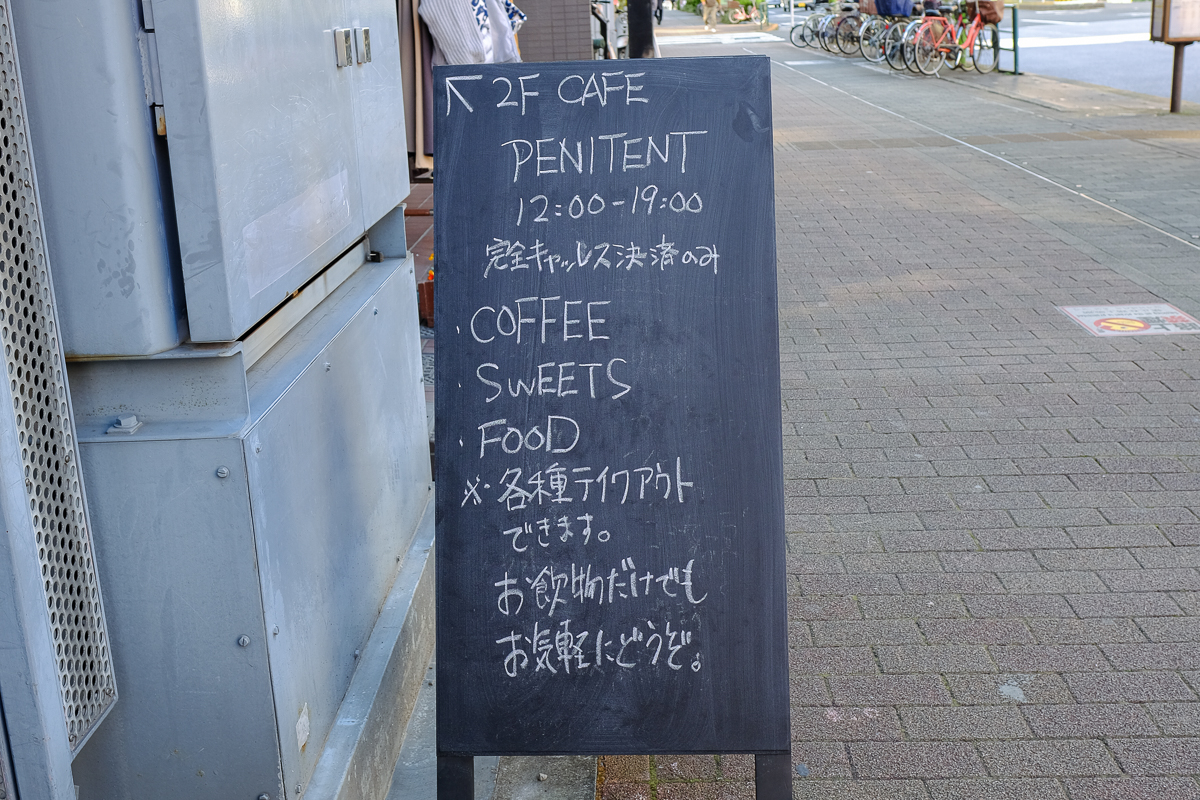 ↖ 2F CAFE
PENITENT
12:00-19:00
完全キャッシュレス決済のみ
・COFFEE
・SWEETS
・FOOD
※・各種テイクアウト
できます。
お飲物だけでも
お気軽にどうぞ。